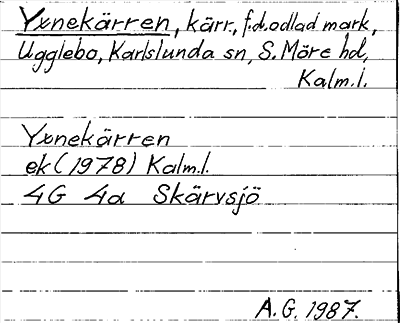 Yxnekärren, kärr, f.d. odlad mark,
Ugglebo, Karlslunda sn, S. Möre hd,
Kalm.l.
Yxnekärren
ek (1978) Kalm.l.
4G 4a Skärvsjö
A.G. 1987.